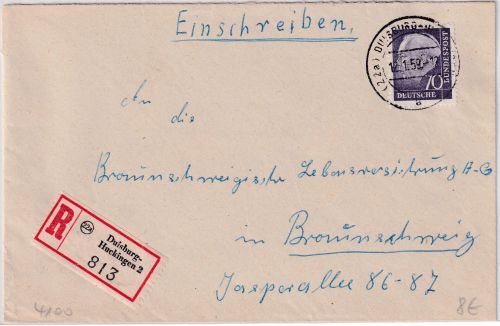 Einschreiben,
(22a) DUISBURG-H
12.1.59.-17
a
70
DEUTSCHE
BUNDESPOST
An die
Braunschweigische Lebensversicherung A-G
in Braunschweig
Jasperallee 86-87
R
22a
Duisburg-
Huckingen 2
813
4100
8€